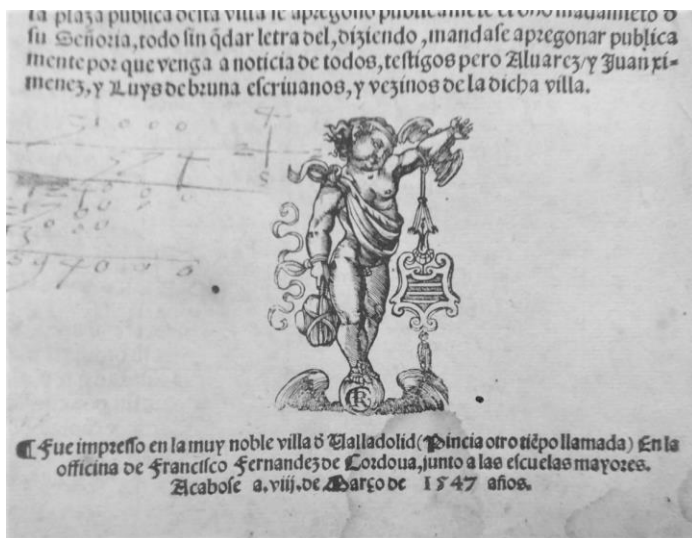 la plaza publica desta villa se apregono publicamẽte
su Señoria, todo sin q̃dar letra del, diziendo, mandase apregonar publica
mente por que venga a noticia de todos, testigos pero Aluarez, y Juan xi-
menez, y Luys de bruna escriuanos, y vezinos de la dicha villa.
¶ Fue impresso en la muy noble villa d̃ Ualladolid (Pincia otro tiẽpo llamada) En la
officina de Francisco Fernandez de Cordoua, junto a las escuelas mayores.
Acabose a. viij. de Março de 1547 años.